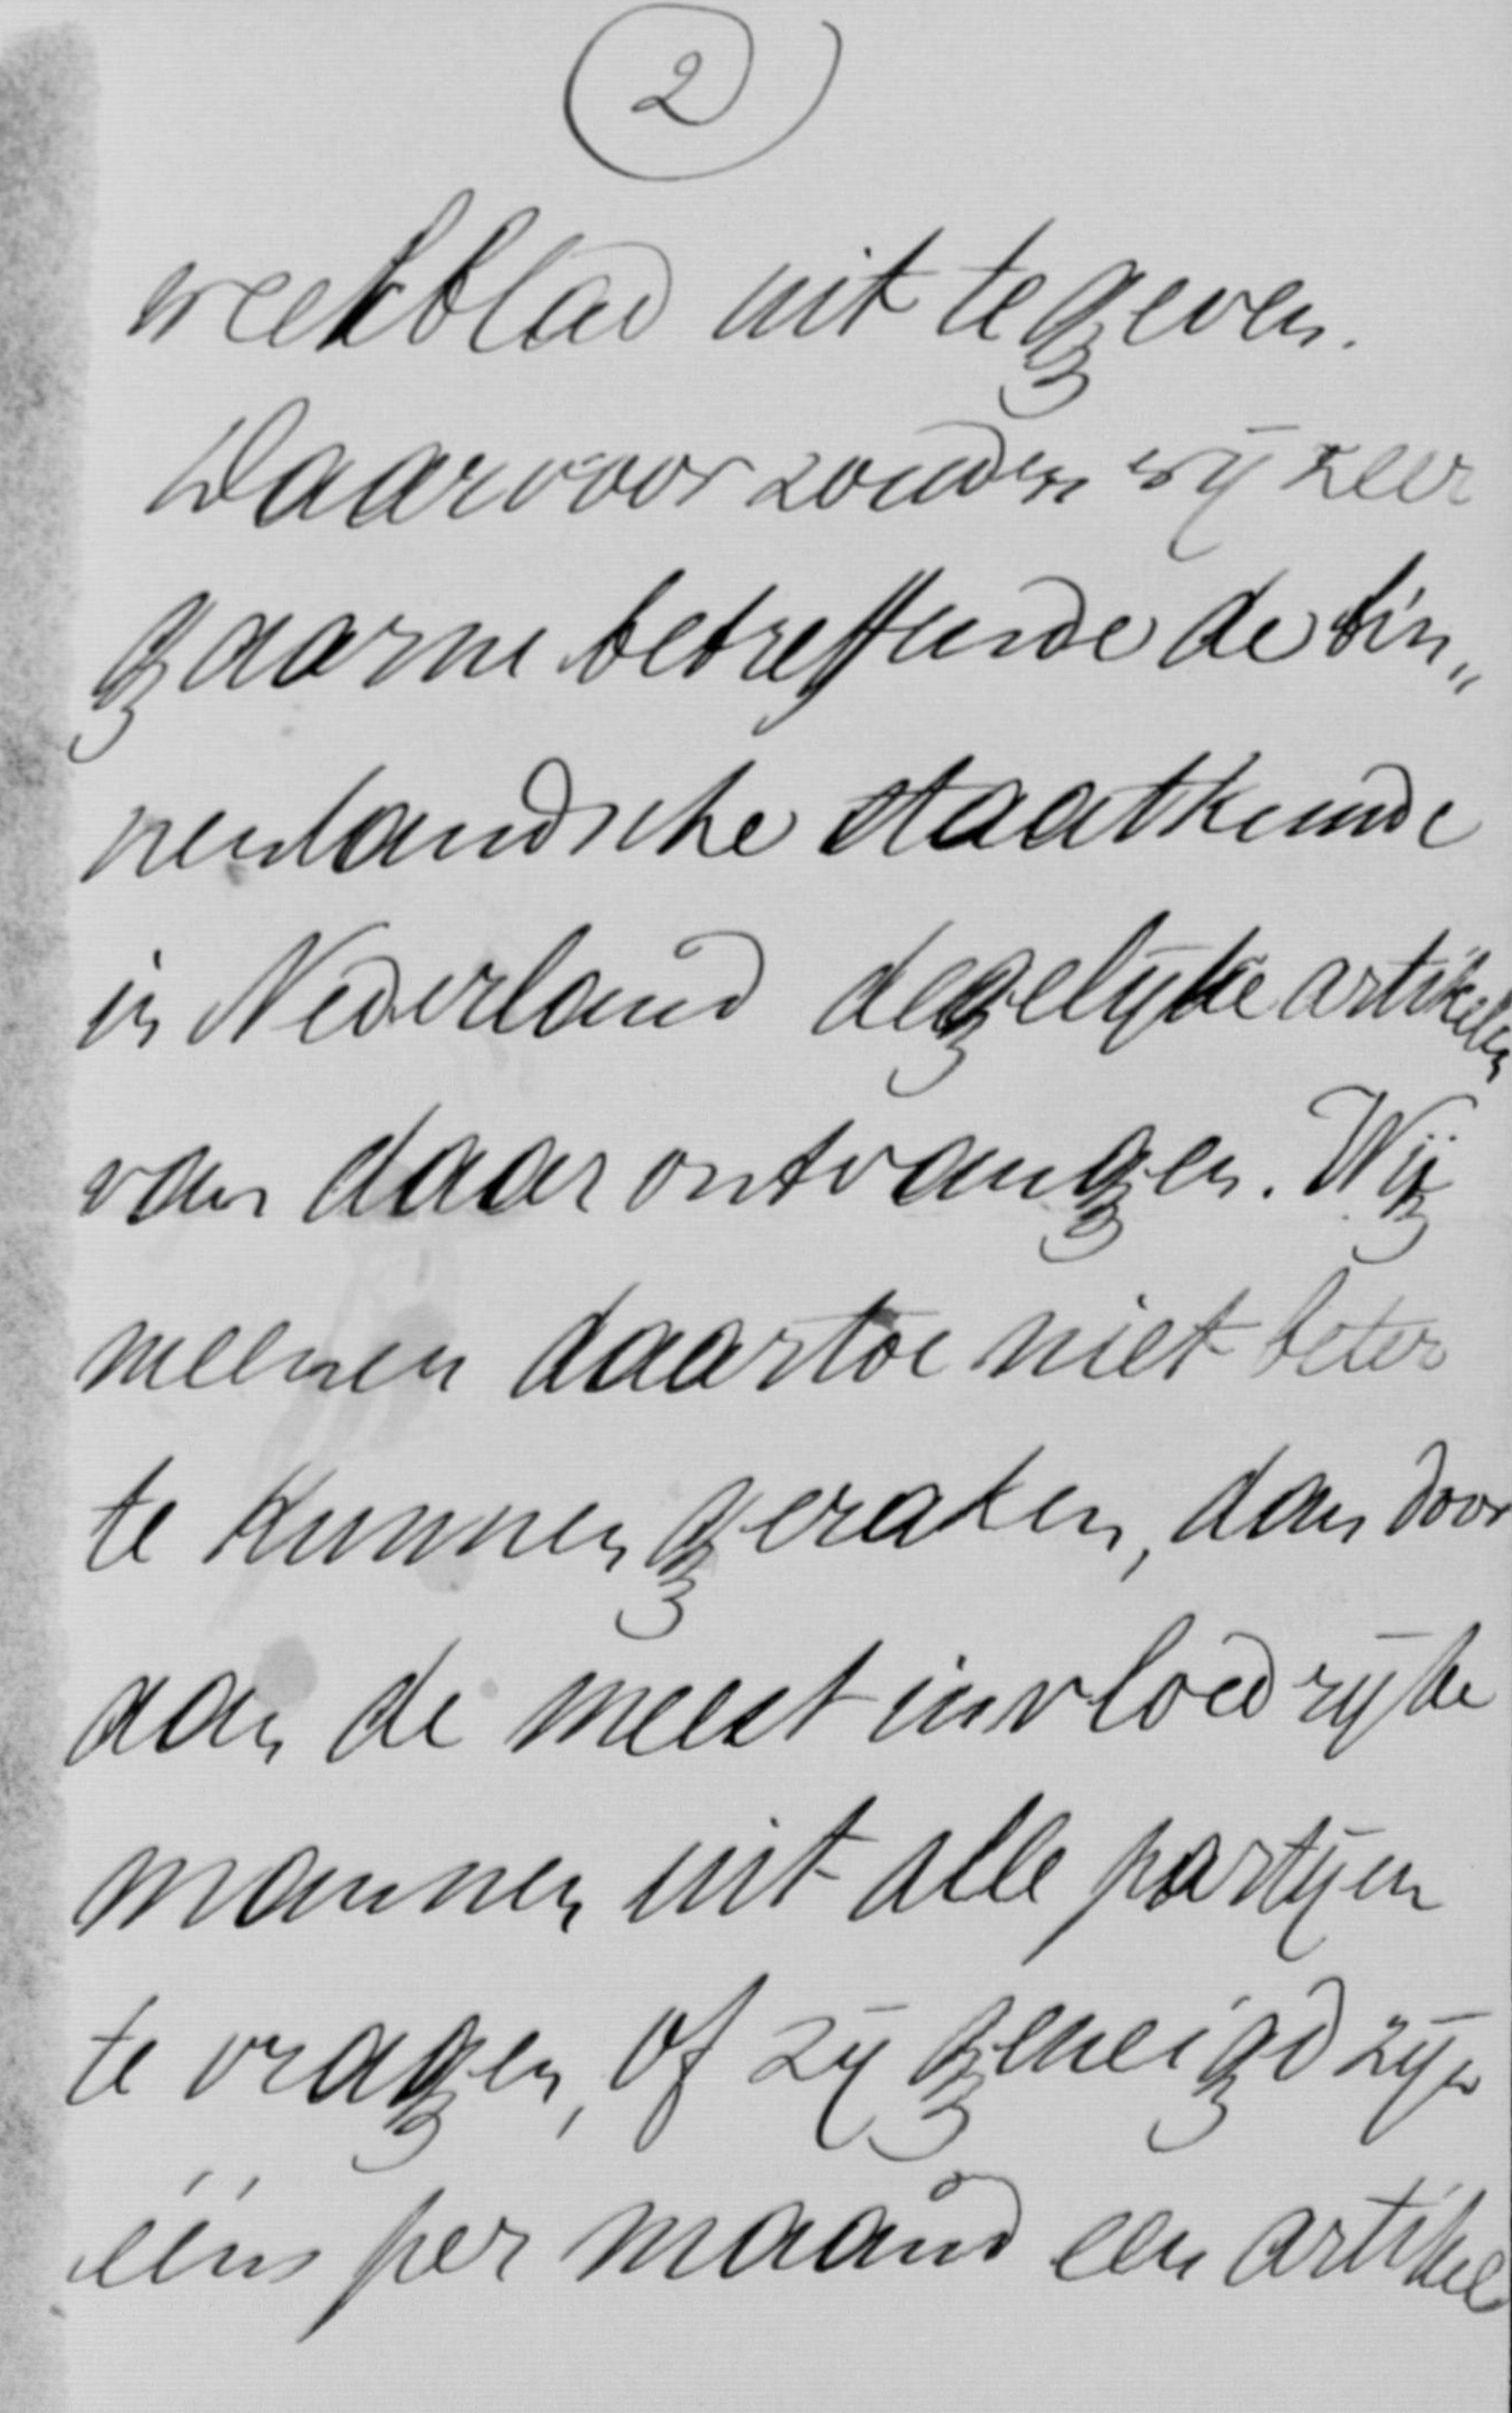 2
weekblad uit te geven.
Daarvoor zouden wij zeer
gaarne betreffende de bin„
nenlandsche staatkunde
in Nederland degelijke artikelen
van daar ontvangen. Wij
meenen daartoe niet beter
te kunnen geraken, dan door
aan de meest invloedrijke
mannen uit alle partijen
te vragen, of zij geneigd zijn
ééns per maand een artikel